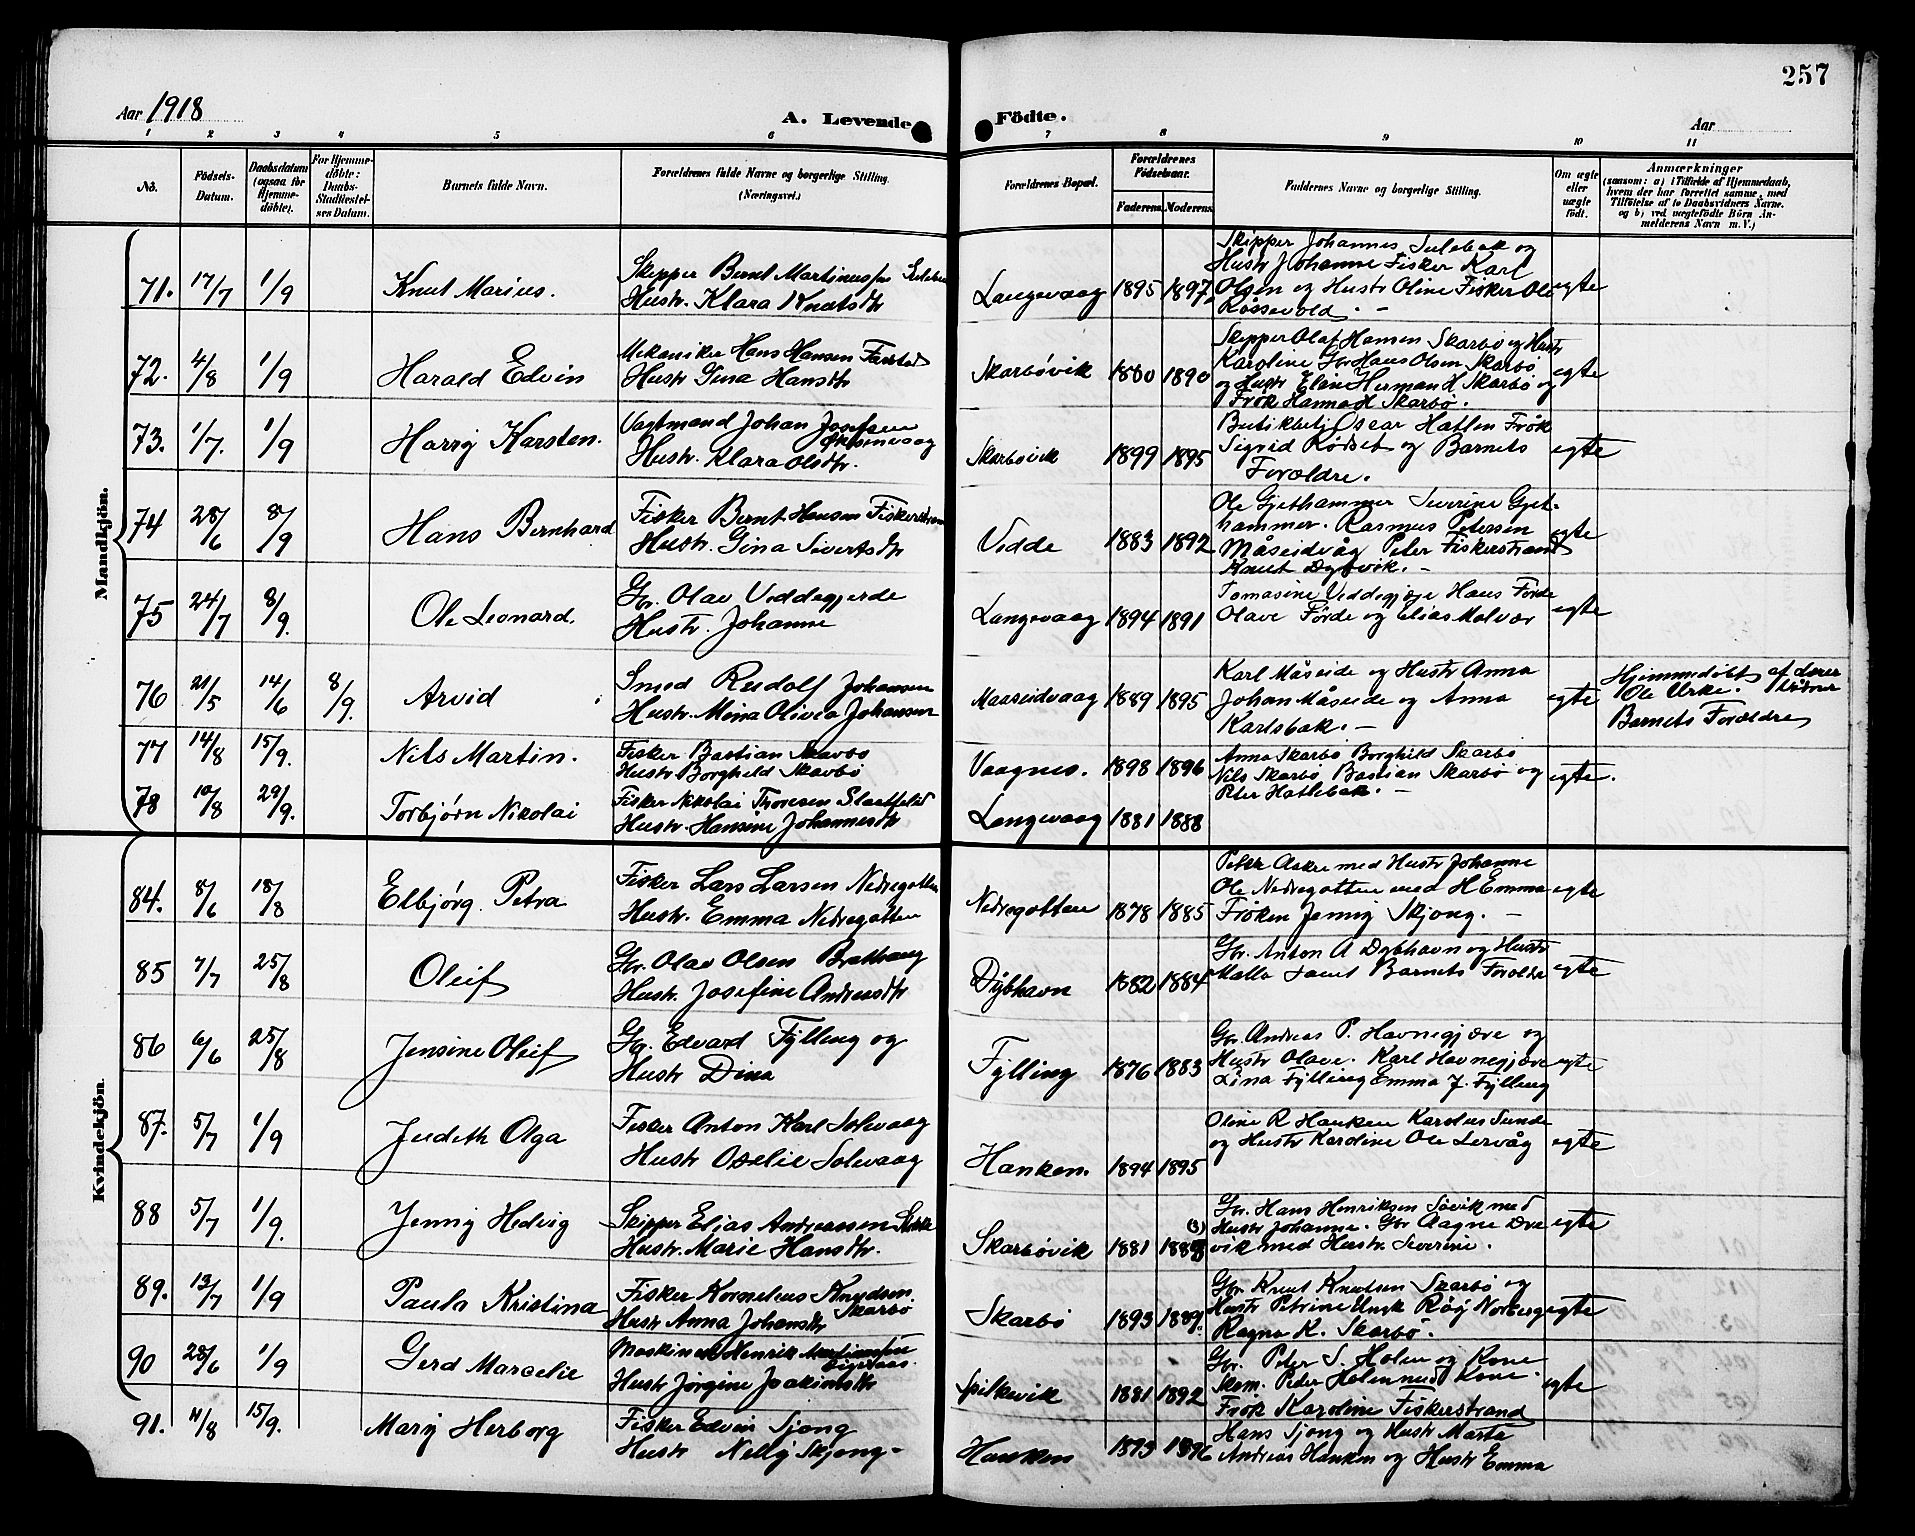 257
Aar 1918
A. Levende
Födte.
Aar
1 2 3 4 5 6 7 8 9 10 11
No.
Födsels-Datum.
Daabsdatum (ogsaa for Hjemme-döbte).
For Hjemme-döbte: Daabs-Stadfæstel-ses Datum.
Barnets fulde Navn.
Forældrenes fulde Navne og borgerlige Stilling. (Næringsvei.)
Forældrenes Bopæl.
Forældrenes Födselsaar.
Faderens. Moderens.
Faddernes Navne og borgerlige Stilling.
Om ægte eller uægte födt.
Anmærkninger
(saasom: a) i Tilfælde af Hjemmedaab,
hvem der har forrettet samme, med
Tilföielse af to Daabsvidners Navne.
og b) ved uægtefödte Börn An-
melderens Navn m. V.)
Mandkjön.
71. 17/7 1/9 Knut Marius.
Skipper Bernt Martinussen
Hustr. Klara Knutsdtr
Langevaag 1895 1897
Skipper Johannes Sulebak og
Hustr Johanne Fisker Karl
Olsen og Hustr Oline Fisker Ole
Røssevold. –
egte
72. 4/8 1/9 Harald Edvin
Mekaniker Hans Hansen Farstad
Hustr Gina Hansdtr
Skarbøvik 1880 1890
Skipper Olaf Hansen Skarbø og Hustr
Karoline Gbr. Hans Olsen Skarbø
og Hustr Eline Herman H Skarbø og
Frøk Hanna Skarbø.
egte
73. 1/7. 1/9 Harry Karsten.
Vagtmand Johan Josefsen
Hustr. Klara Olsdtr.
Skarbøvik 1899 1895
Butikbetj Oscar Hatlen Frøk
Sigrid Rødset og Barnets
Forældre.
egte
74 28/6 8/9 Hans Bernhard
Fisker Bernt Hansen Fiskerstrand
Hustr. Gina Sivertsdtr
Vedde 1883 1892
Ole Gjethammer Severine Gjet-
hammer. Rasmus Petersen
Måseidvåg Peter Fiskerstrand
Knut Dybvik. –
egte
75 24/7 8/9. Ole Leonard.
Gbr. Olav Veddegjerde
Hustr. Johanne
Langevaag 1894 1891
Tomasine Veddegjerde Hans Førde
Olave Førde og Elias Molvær
egte
76 21/5 14/6 8/9. Arvid
Smed Rudolf Johansen
Hustr. Mina Olivia Johansen
Maaseidvaag 1889 1895
Karl Måseide og Hustr Anna
Johan Måseide og Anna
Karlsbak. –
egte
Hjemmedøbt af Lærer
Ole Urke.
Barnets Forældre
77 14/8 15/9. Nils Martin.
Fisker Bastian Skarbø
Hustr Borghild Skarbø
Vaagnes. 1898 1896
Anna Skarbø Borghild Skarbø
Nils Skarbø, Bastian Skarbø og
Peter Hatlebak. –
egte.
78 10/8 29/9. Torbjørn Nikolai
Fisker Nikolai Thoresen Slettfelid
Hustr. Hansine Johannesdtr
Langevaag 1881 1888
Kvindekjön.
84. 8/6 18/8 Elbjørg Petra
Fisker Lars Larsen Nedregotten
Hustr. Emma Nedregotten
Nedregotten 1878 1885
Peter Aakre med Hustr Johanne
Ole Nedregotten med H Emma
Frøken Jenny Skjong. –
egte
85 7/7 25/8 Oleif
Gbr. Olav Olsen Brathaug
Hustr. Josefine Andreasdtr
Dybhavn 1882 1884
Gbr. Anton A Dybhavn og Hustr
Malla samt Barnets Foreldre
egte
86 6/6 25/8 Jensine Oleif
Gbr. Edvard Fylling og
Hustr Dina
Fylling 1876 1883
Gbr. Andreas P. Havnegjære og
Hustr Olave. Karl Havnegjære
Lina Fylling Emma J. Fylling
egte
87. 5/7 1/9 Judith Olga
Fisker Anton Karl Solevaag
Hustr Oselie Solevaag
Hanken. 1894 1895
Oline R Hanken Karolus Sunde
og Hustr Karoline Ole Lervåg
egte
88 5/7 1/9. Jenny Hedvig
Skipper Elias Andreassen
Hustr. Marie Hansdtr.
Skarbøvik 1881 1883
Gbr. Hans Henriksen Søvik med
Hustr Johanne. Gbr Aagne Dre
vik med Hustr. Severine.
egte
89. 13/7 1/9 Paula Kristina
Fisker Kornelius Knudsen Skarbø
Hustr Anna Johansdtr
Skarbø 1893 1889.
Gbr. Knut Knutsen Skarbø og
Hustr Petrine Ungk Røy Norberg
Ragna K. Skarbø.
egte
90 28/6 1/9 Gerd Marcelie
Maskinist Henrik Martinussen
Hustr Jørgine Joakimsdtr
Spilkevik 1881 1892
Gbr. Peter S. Holen og Kone
Skom. Peter Holen med Kone.
Frøk Karoline Fiskerstrand
egte
91. 11/8 15/9. Mary Herborg
Fisker Edvin Sjong
Hustr Nelly Skjong –
Hanken 1893 1896
Hans Sjong og Hustr Marte
Andreas Hanken og Hustr Emma